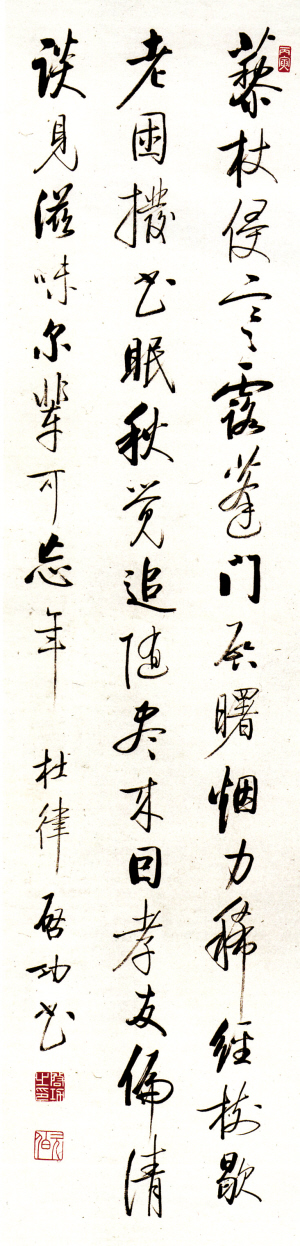 丙寅
藜杖侵寒露蓬门启曙烟力稀经树歇
老困撥书眠秋觉追随尽来因孝友偏清
谈见滋味尔辈可忘年 杜律 启功书
启功之印
元白